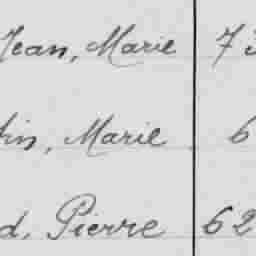 Jean, Marie 73
tin, Marie 6
d, Pierre 62